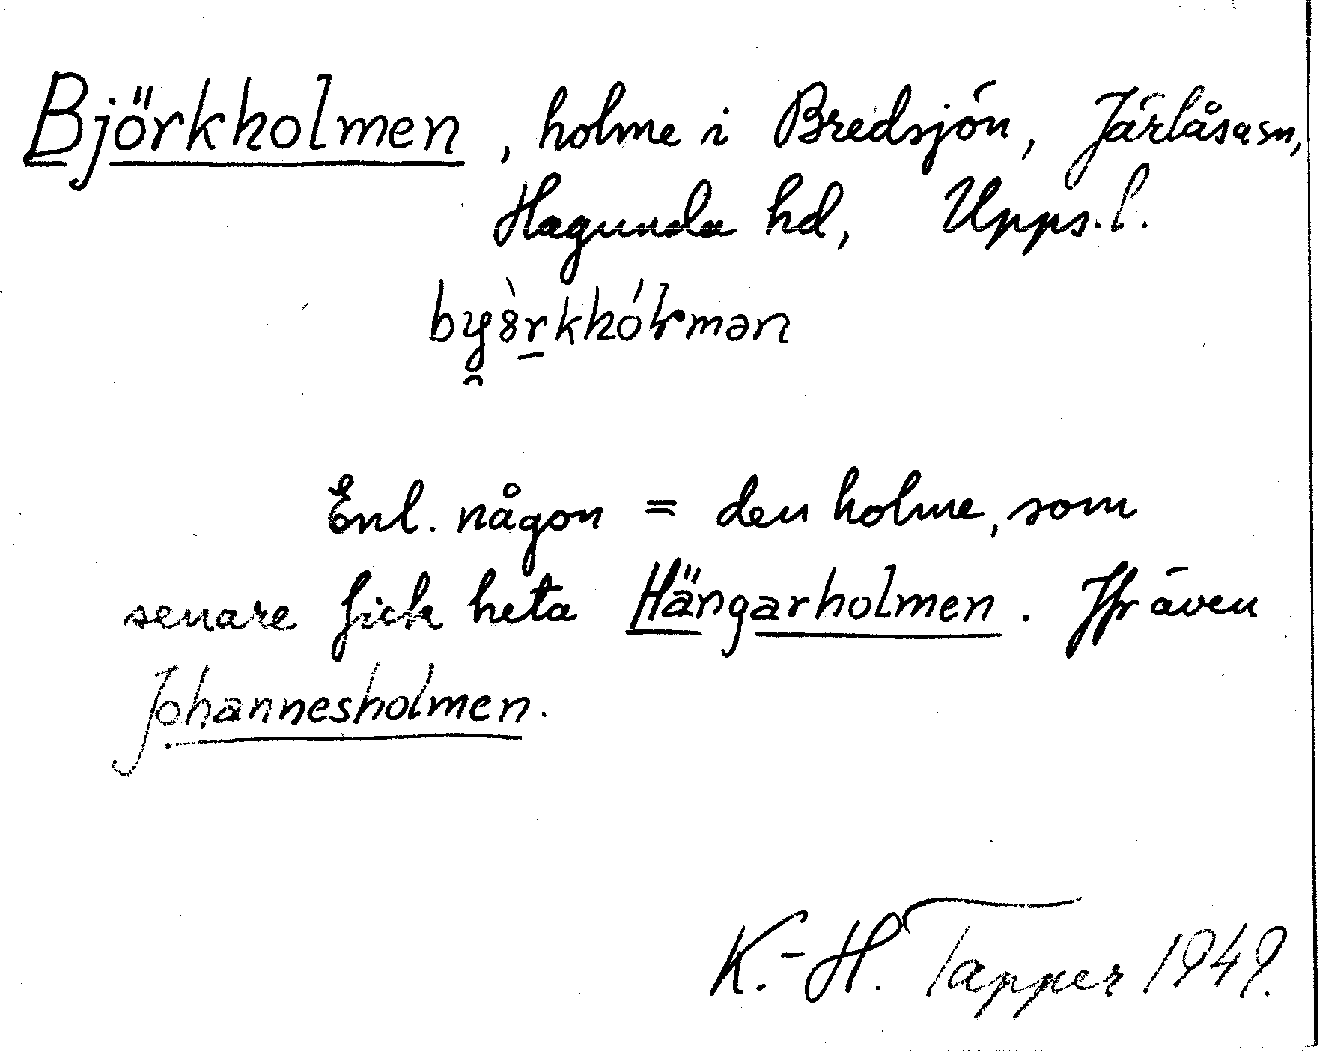 Björkholmen, holme i Bredsjön, Järlåsa sn,
Hagunda hd, Upps. l.
Enl. någon = den holme, som
senare fick heta Hängarholmen. Jfr även
Johannesholmen.
K.-H. Tapper 1949.